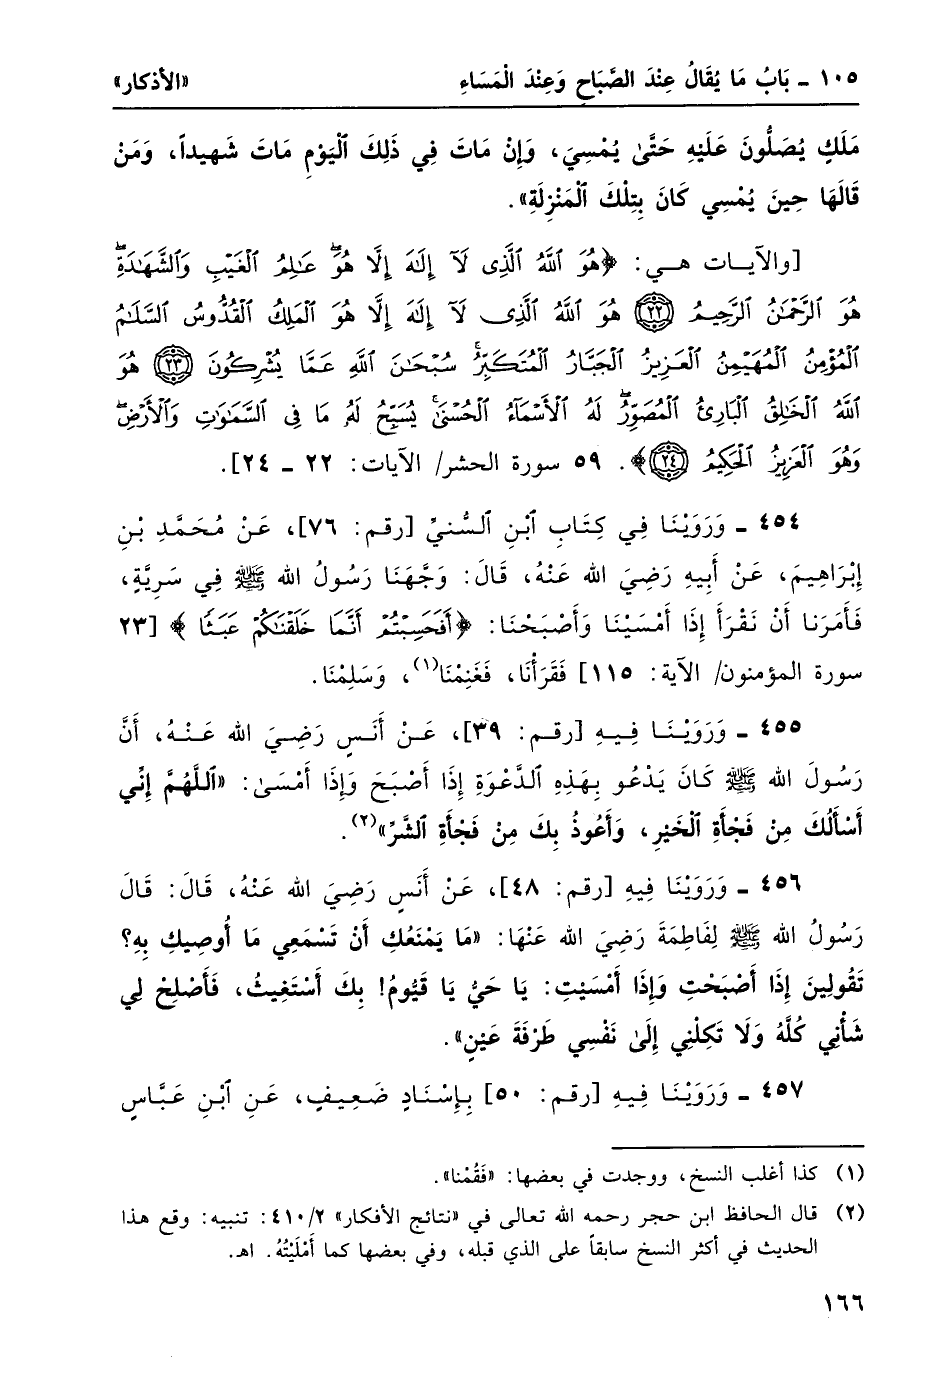 ١٠٥ ـ بَابُ مَا يُقَالُ عِنْدَ الصَّبَاحِ وَعِنْدَ الْمَسَاءِ «الأذكار»
مَلَكٍ يُصَلُّونَ عَلَيْهِ حَتَّىٰ يُمْسِيَ، وَإِنْ مَاتَ فِي ذَلِكَ ٱلْيَوْمِ مَاتَ شَهِيداً، وَمَنْ
قَالَهَا حِينَ يُمْسِي كَانَ بِتِلْكَ ٱلْمَنْزِلَةِ».
[والآيـات هـي: ﴿هُوَ ٱللَّهُ ٱلَّذِى لَآ إِلَٰهَ إِلَّا هُوَۖ عَٰلِمُ ٱلْغَيْبِ وَٱلشَّهَٰدَةِۖ
هُوَ ٱلرَّحْمَٰنُ ٱلرَّحِيمُ ﴿٢٢﴾ هُوَ ٱللَّهُ ٱلَّذِى لَآ إِلَٰهَ إِلَّا هُوَ ٱلْمَلِكُ ٱلْقُدُّوسُ ٱلسَّلَٰمُ
ٱلْمُؤْمِنُ ٱلْمُهَيْمِنُ ٱلْعَزِيزُ ٱلْجَبَّارُ ٱلْمُتَكَبِّرُۚ سُبْحَٰنَ ٱللَّهِ عَمَّا يُشْرِكُونَ ﴿٢٣﴾ هُوَ
ٱللَّهُ ٱلْخَٰلِقُ ٱلْبَارِئُ ٱلْمُصَوِّرُۖ لَهُ ٱلْأَسْمَآءُ ٱلْحُسْنَىٰۚ يُسَبِّحُ لَهُۥ مَا فِى ٱلسَّمَٰوَٰتِ وَٱلْأَرْضِۖ
وَهُوَ ٱلْعَزِيزُ ٱلْحَكِيمُ ﴿٢٤﴾﴾. ٥٩ سورة الحشر/ الآيات: ٢٢ ـ ٢٤].
٤٥٤ ـ وَرَوَيْنَا فِي كِتَابِ ٱبْنِ ٱلسُّنيِّ [رقم: ٧٦]، عَنْ مُحَمَّدِ بْنِ
إِبْرَاهِيمَ، عَنْ أَبِيهِ رَضِيَ الله عَنْهُ، قَالَ: وَجَّهَنَا رَسُولُ الله ﷺ فِي سَرِيَّةٍ،
فَأَمَرَنا أَنْ نَقْرَأَ إِذَا أَمْسَيْنَا وَأَصْبَحْنَا: ﴿أَفَحَسِبْتُمْ أَنَّمَا خَلَقْنَٰكُمْ عَبَثًا ﴾ [٢٣
سورة المؤمنون/ الآية: ١١٥] فَقَرَأْنَا، فَغَنِمْنَا(١)، وَسَلِمْنَا.
٤٥٥ ـ وَرَوَيْنَا فِيهِ [رقم: ٣٩]، عَنْ أَنَسٍ رَضِيَ الله عَنْهُ، أَنَّ
رَسُولَ الله ﷺ كَانَ يَدْعُو بِهَذِهِ ٱلدَّعْوَةِ إِذَا أَصْبَحَ وَإِذَا أَمْسَىٰ: «ٱللَّهُمَّ إِنِّي
أَسْأَلُكَ مِنْ فَجْأَةِ ٱلْخَيْرِ، وَأَعُوذُ بِكَ مِنْ فَجْأَةِ ٱلشَّرِّ»(٢).
٤٥٦ ـ وَرَوَيْنَا فِيهِ [رقم: ٤٨]، عَنْ أَنَسٍ رَضِيَ الله عَنْهُ، قَالَ: قَالَ
رَسُولُ الله ﷺ لِفَاطِمَةَ رَضِيَ الله عَنْهَا: «مَا يَمْنَعُكِ أَنْ تَسْمَعِي مَا أُوصِيكِ بِهِ؟
تَقُولِينَ إِذَا أَصْبَحْتِ وَإِذَا أَمْسَيْتِ: يَا حَيُّ يَا قَيُّومُ! بِكَ أَسْتَغِيثُ، فَأَصْلِحْ لِي
شَأْنِي كُلَّهُ وَلَا تَكِلْنِي إِلَىٰ نَفْسِي طَرْفَةَ عَيْنٍ».
٤٥٧ ـ وَرَوَيْنَا فِيهِ [رقم: ٥٠] بِإِسْنَادٍ ضَعِيفٍ، عَنِ ٱبْنِ عَبَّاسٍ
(١) كذا أغلب النسخ، ووجدت في بعضها: «فَقُمْنا».
(٢) قال الحافظ ابن حجر رحمه الله تعالى في «نتائج الأفكار» ٤١٠/٢: تنبيه: وقع هذا
الحديث في أكثر النسخ سابقاً على الذي قبله، وفي بعضها كما أَمْلَيْتُهُ. اهـ.
١٦٦